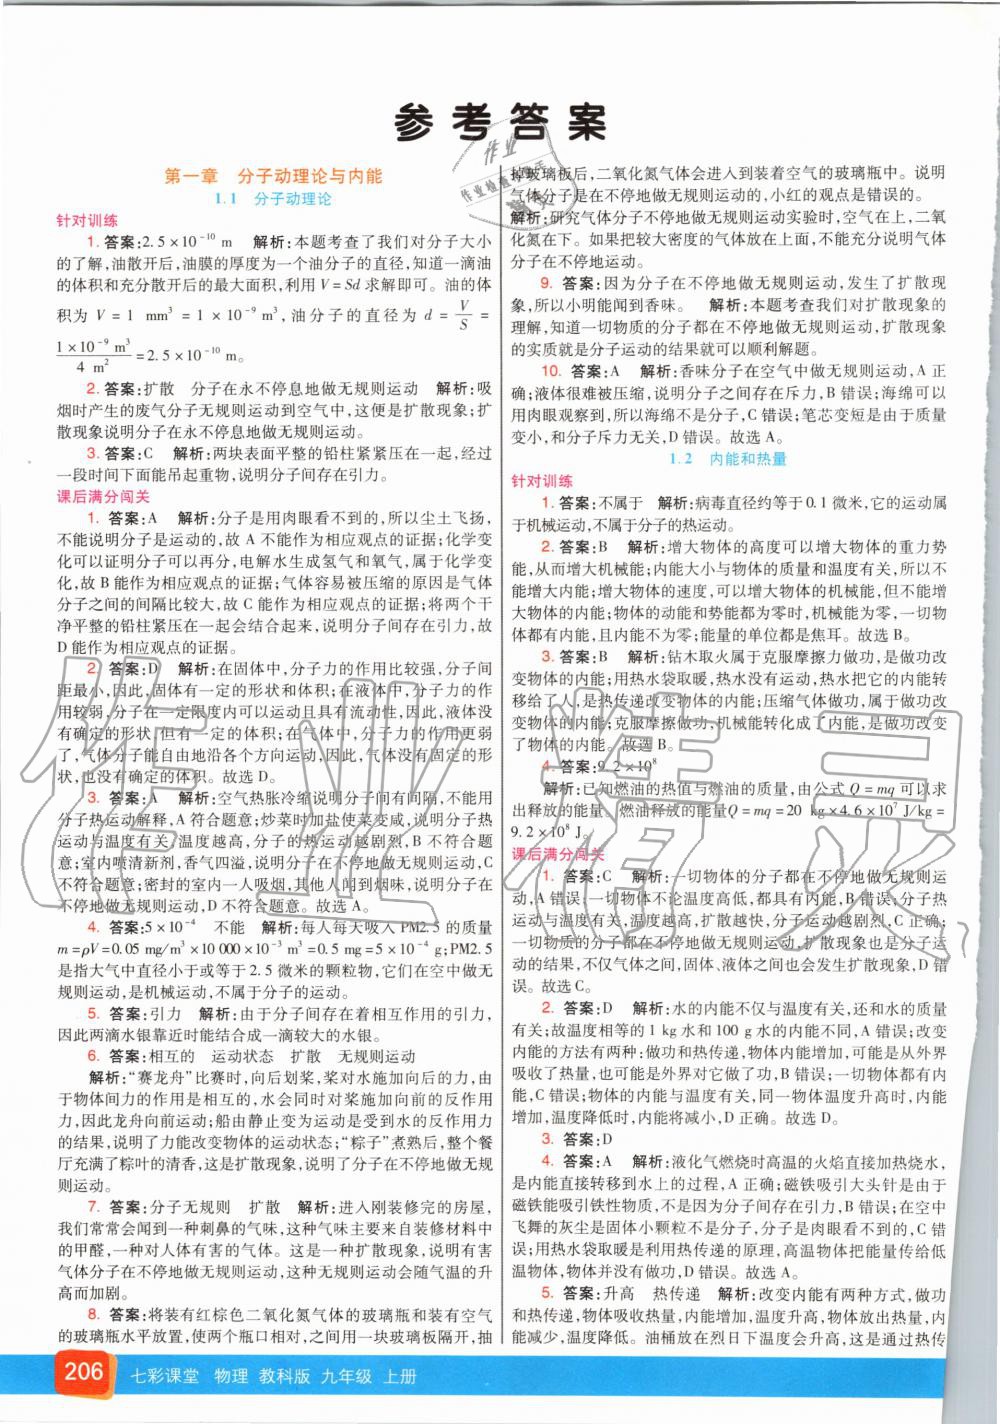 参考答案
第一章 分子动理论与内能
1.1 分子动理论
针对训练
1. 答案:2.5×10⁻¹⁰ m 解析:本题考查了我们对分子大小
的了解,油散开后,油膜的厚度为一个油分子的直径,知道一滴油
的体积和充分散开后的最大面积,利用 V=Sd 求解即可。油的体
积为 V=1 mm³=1×10⁻⁹ m³,油分子的直径为 d=V/S=
1×10⁻⁹ m³/4 m²=2.5×10⁻¹⁰ m。
2. 答案:扩散 分子在永不停息地做无规则运动 解析:吸
烟时产生的废气分子无规则运动到空气中,这便是扩散现象;扩
散现象说明分子在永不停息地做无规则运动。
3. 答案:C 解析:两块表面平整的铅柱紧紧压在一起,经过
一段时间下面能吊起重物,说明分子间存在引力。
课后满分闯关
1. 答案:A 解析:分子是用肉眼看不到的,所以尘土飞扬,
不能说明分子是运动的,故 A 不能作为相应观点的证据;化学变
化可以证明分子可以再分,电解水生成氢气和氧气,属于化学变
化,故 B 能作为相应观点的证据;气体容易被压缩的原因是气体
分子之间的间隔比较大,故 C 能作为相应观点的证据;将两个干
净平整的铅柱紧压在一起会结合起来,说明分子间存在引力,故
D 能作为相应观点的证据。
2. 答案:D 解析:在固体中,分子力的作用比较强,分子间
距最小,因此,固体有一定的形状和体积;在液体中,分子力的作
用较弱,分子在一定限度内可以运动且具有流动性,因此,液体没
有确定的形状,但有一定的体积;在气体中,分子力的作用更弱
了,气体分子能自由地沿各个方向运动,因此,气体没有固定的形
状,也没有确定的体积。故选 D。
3. 答案:A 解析:空气热胀冷缩说明分子间有间隔,不能用
分子热运动解释,A 符合题意;炒菜时加盐使菜变咸,说明分子热
运动与温度有关,温度越高,分子的热运动越剧烈,B 不符合题
意;室内喷清新剂,香气四溢,说明分子在不停地做无规则运动,C
不符合题意;密封的室内一人吸烟,其他人闻到烟味,说明分子在
不停地做无规则运动,D 不符合题意。故选 A。
4. 答案:5×10⁻⁴ 不能 解析:每人每天吸入 PM2.5 的质量
m=ρV=0.05 mg/m³×10 000×10⁻³ m³=0.5 mg=5×10⁻⁴ g;PM2.5
是指大气中直径小于或等于 2.5 微米的颗粒物,它们在空中做无
规则运动,是机械运动,不属于分子的运动。
5. 答案:引力 解析:由于分子间存在着相互作用的引力,
因此两滴水银靠近时能结合成一滴较大的水银。
6. 答案:相互的 运动状态 扩散 无规则运动
解析:“赛龙舟”比赛时,向后划桨,桨对水施加向后的力,由
于物体间力的作用是相互的,水会同时对桨施加向前的反作用
力,使龙舟向前运动;船由静止变为运动是受到水的反作用力
的结果,说明了力能改变物体的运动状态;“粽子”煮熟后,整个餐
厅充满了粽叶的清香,这是扩散现象,说明了分子在不停地做无规
则运动。
7. 答案:分子无规则 扩散 解析:进入刚装修完的房屋,
我们常常会闻到一种刺鼻的气味,这种气味主要来自装修材料中
的甲醛,一种对人体有害的气体。这是一种扩散现象,说明有害
气体分子在不停地做无规则运动,这种运动还会随气温的升
高而加剧。
8. 答案:将装有红棕色二氧化氮气体的玻璃瓶和装有空气
的玻璃瓶水平放置,使两个瓶口相对,中间用一块玻璃板隔开,抽
掉玻璃板后,二氧化氮气体会进入到装着空气的玻璃瓶中。说明
气体分子是在不停地做无规则运动的,小红的观点是错误的。
解析:研究气体分子不停地做无规则运动实验时,空气在上,二氧
化氮在下。如果把较大密度的气体放在上面,不能充分说明气体
分子在不停地运动。
9. 答案:因为分子在不停地做无规则运动,发生了扩散现
象,所以小明能闻到香味。 解析:本题考查我们对扩散现象的
理解,知道一切物质的分子都在不停地做无规则运动,扩散现象
的实质就是分子运动的结果就可以顺利解题。
10. 答案:A 解析:香味分子在空气中做无规则运动,A 正
确;液体很难被压缩,说明分子之间存在斥力,B 错误;海绵可以
用肉眼观察到,所以海绵不是分子,C 错误;笔芯变短是由于质量
变小,和分子斥力无关,D 错误。故选 A。
1.2 内能和热量
针对训练
1. 答案:不属于 解析:病毒直径约等于 0.1 微米,它的运动属
于机械运动,不属于分子的热运动。
2. 答案:B 解析:增大物体的高度可以增大物体的重力势
能,从而增大机械能;内能大小与物体的质量和温度有关,所以不
能增大内能;增大物体的速度,可以增大物体的机械能,但不能增
大物体的内能;物体的动能和势能都为零时,机械能为零,一切物
体都有内能,且内能不为零;能量的单位都是焦耳。故选 B。
3. 答案:B 解析:钻木取火属于克服摩擦力做功,是做功改
变物体的内能;用热水袋取暖,热水没有运动,热水把它的内能转
移给了人,是热传递改变物体的内能;压缩气体做功,属于做功改
变物体的内能;克服摩擦做功,机械能转化成了内能,是做功改变
了物体的内能。故选 B。
4. 答案:9.2×10⁸
解析:已知燃油的热值与燃油的质量,由公式 Q=mq 可以求
出释放的能量。燃油释放的能量Q=mq=20 kg×4.6×10⁷ J/kg=
9.2×10⁸ J。
课后满分闯关
1. 答案:C 解析:一切物体的分子都在不停地做无规则运
动,A 错误;一切物体不论温度高低,都具有内能,B 错误;分子热
运动与温度有关,温度越高,扩散越快,分子运动越剧烈,C 正确;
一切物质的分子都在不停地做无规则运动,扩散现象也是分子运
动的结果,不仅气体之间,固体、液体之间也会发生扩散现象,D 错
误。故选 C。
2. 答案:D 解析:水的内能不仅与温度有关,还和水的质量
有关;故温度相等的 1 kg 水和 100 g 水的内能不同,A 错误;改变
内能的方法有两种:做功和热传递,物体内能增加,可能是从外界
吸收了热量,可能是外界对它做了功,B 错误;一切物体都有内
能,C 错误;物体的内能与温度有关,同一物体温度升高时,内能
增加,温度降低时,内能将减小,D 正确。故选 D。
3. 答案:D
4. 答案:A 解析:液化气燃烧时高温的火焰直接加热烧水,
是内能直接转移到水上的过程,A 正确;磁铁吸引大头针是由于
磁铁能吸引铁性物质,不是因为分子间存在引力,B 错误;在空中
飞舞的灰尘是由固体小颗粒不是分子,分子是肉眼看不到的,C 错
误;用热水袋取暖是利用热传递的原理,高温物体把能量传给低
温物体,物体并没有做功,D 错误。故选 A。
5. 答案:升高 热传递 解析:改变内能有两种方式,做功
和热传递,物体吸收热量,内能增加,温度升高,物体放热,内
能减少,温度降低。油桶放在烈日下温度会升高,这是通过热传
206 七彩课堂 物理 教科版 九年级 上册
作业精灵